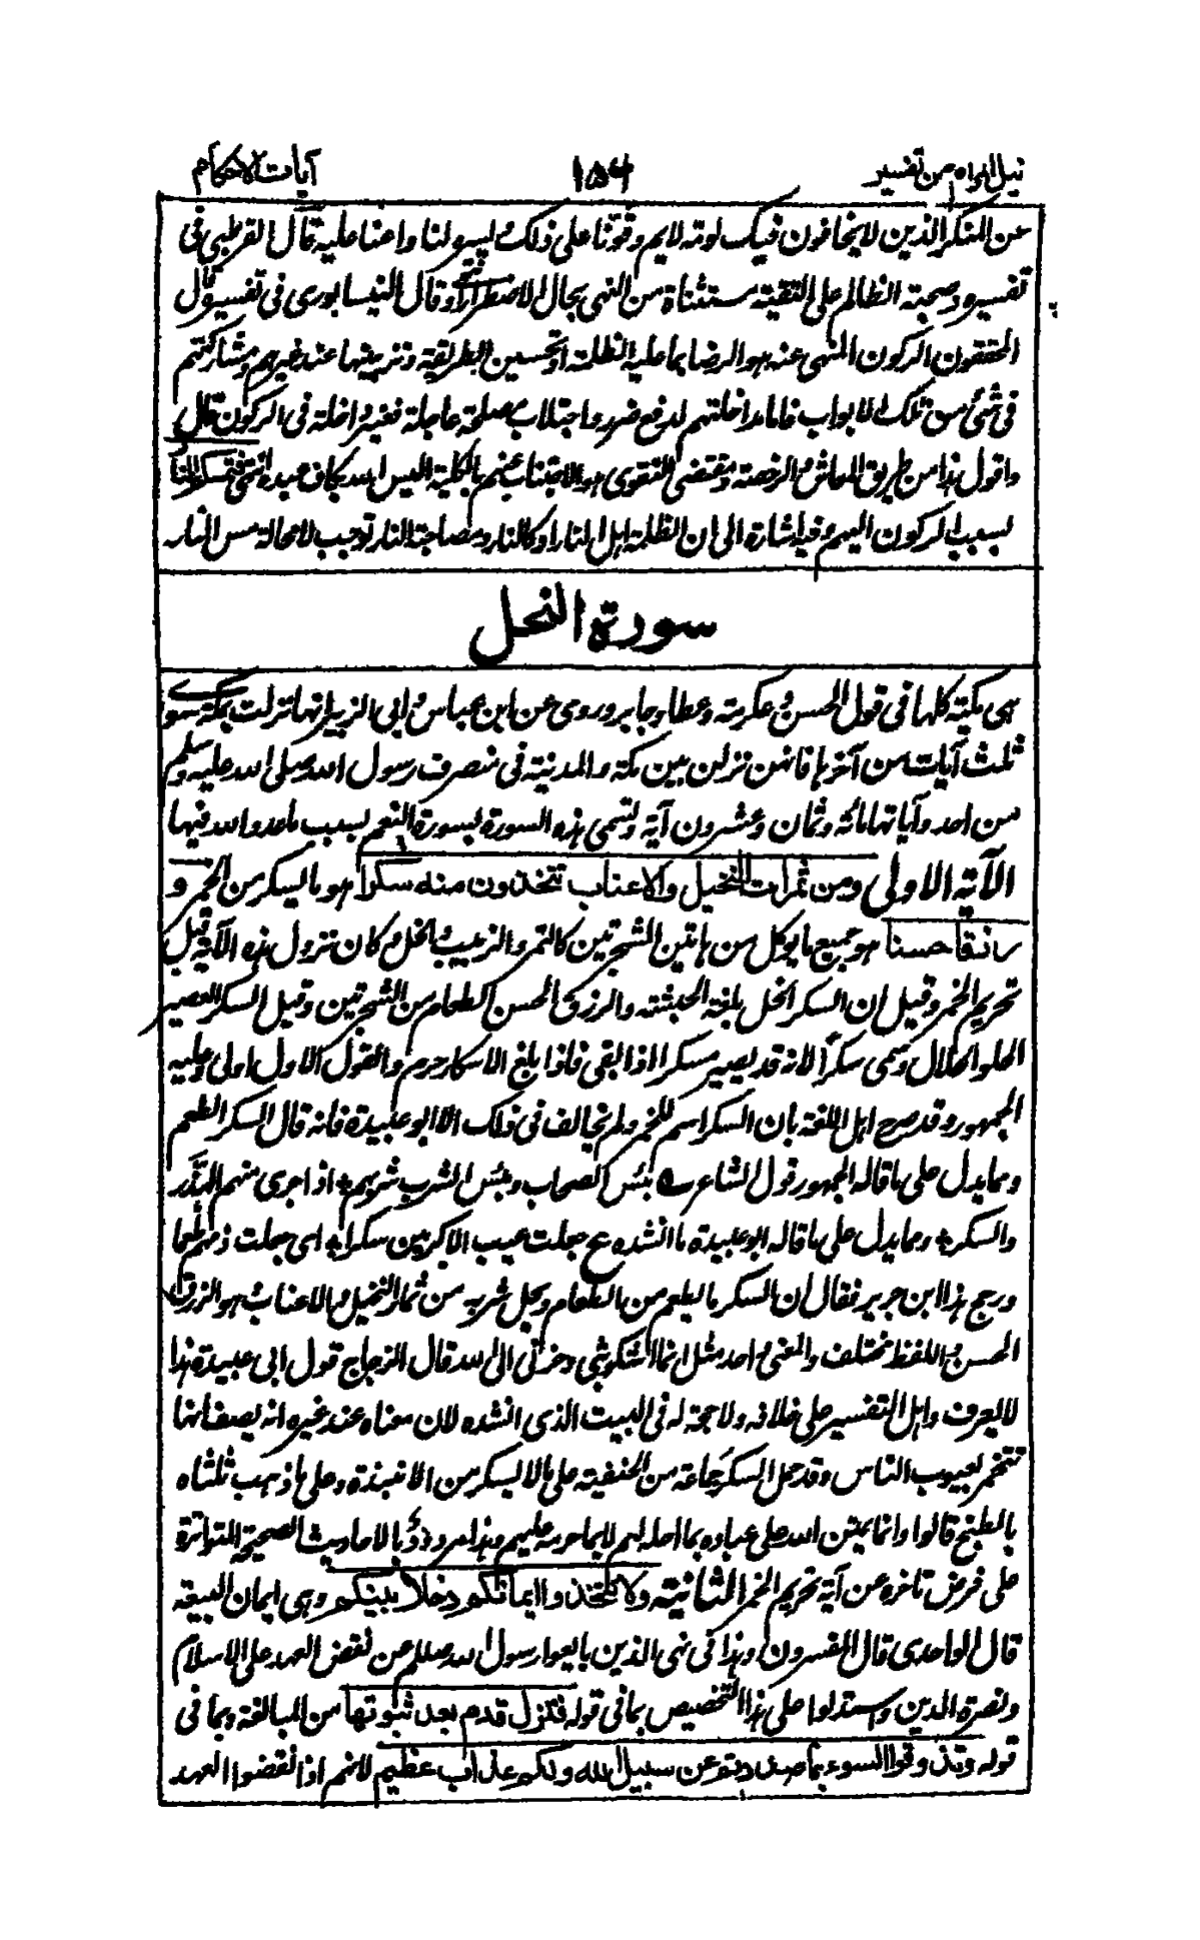 نيل المرام من تفسير ١٥٦ آيات الاحكام
عن المنكر الذين لا يخافون فيك لومة لايم وقونا على ذلك ويسره لنا واعنا عليه قال القرطبي في
تفسيره وصحبة الظالم على التقية مستثناة من النهي بحال الاضطرار انتهى وقال النيسابوري في تفسيره قال
المحققون الركون المنهي عنه هو الرضا بما عليه الظلمة او تحسين الطريقة وتزيينها عند غيرهم ومشاركتهم
في شئ من تلك الابواب فاما مداخلتهم لدفع ضرر واجتلاب مصلحة عاجلة فغير داخلة في الركون قال
واقول هذا من طريق المعاش والرخصة ومقتضى التقوى هو الاجتناب عنهم بالكلية اليس الله بكاف عبده انتهى فتمسكم النار
بسبب الركون اليهم وفيه اشارة الى ان الظلمة اهل النار او كالنار ومصاحبة النار توجب لا محالة مس النار
سورة النحل
هي مكية كلها في قول الحسن وعكرمة وعطاء وجابر وروى عن ابن عباس وابي الزبير انها نزلت بمكة سوى
ثلث آيات من آخرها فانهن نزلن بين مكة والمدينة في منصرف رسول الله صلى الله عليه وسلم
من احد وآياتها مائة وثمان وعشرون آية وتسمى هذه السورة بسورة النعم بسبب ما عدد الله فيها
الآية الاولى ومن ثمرات النخيل والاعناب تتخذون منه سكرا هو ما يسكر من الخمر و
رزقا حسنا هو جميع ما يوكل من هاتين الشجرتين كالتمر والزبيب والخل وكان نزول هذه الآية قبل
تحريم الخمر وقيل ان السكر الخل بلغة الحبشة والرزق الحسن الطعام من الشجرتين وقيل السكر العصير
الحلو الحلال وسمى سكرا لانه قد يصير مسكرا اذا بقي فاذا بلغ الاسكار حرم والقول الاول اولى وعليه
الجمهور وقد صرح اهل اللغة بان السكر اسم للخمر ولم يخالف في ذلك الا ابو عبيدة فانه قال السكر الطعم
ومما يدل على ما قاله الجمهور قول الشاعر بئس الصحاب وبئس الشرب شربهم اذا جرى منهم المذر
والسكر ومما يدل على ما قاله ابو عبيدة ما انشده ع جعلت عيب الاكرمين سكرا اي جعلت ذمهم طعما
ورجح هذا ابن جرير فقال ان السكر ما يطعم من الطعام ويحل شربه من ثمار النخيل والاعناب وهو الرزق
الحسن واللفظ مختلف والمعنى واحد مثل انما اشكو بثي وحزني الى الله قال الزجاج قول ابي عبيدة هذا
لا يعرف واهل التفسير على خلافه ولا حجة له في البيت الذي انشده لان معناه عند غيره انه يصف انها
تتخمر بعيوب الناس وقد حمل السكر جماعة من الحنفية على ما لا يسكر من الانبذة وعلى ما ذهب ثلثاه
بالطبخ قالوا وانما يمتن الله على عباده بما احله لهم لا بما حرمه عليهم وهذا مردود بالاحاديث الصحيحة المتواترة
على فرض تاخره عن آية تحريم الخمر الثانية ولا تتخذوا ايمانكم دخلا بينكم وهي ايمان البيعة
قال الواحدي قال المفسرون وهذا في نهي الذين بايعوا رسول الله صللم عن نقض العهد على الاسلام
ونصرة الدين واستدلوا على هذا التخصيص بما في قوله فتزل قدم بعد ثبوتها من المبالغة وبما في
قوله وتذوقوا السوء بما صددتم عن سبيل الله ولكم عذاب عظيم لانهم اذا نقضوا العهد